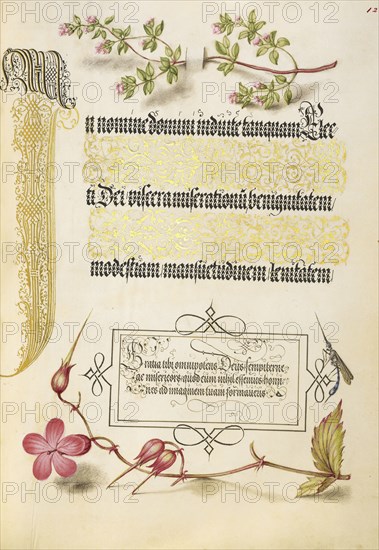 12
In nomine domini induite tanquam Elec
ti Dei viscera miserationū benignitatem
modestiam mansuetudinem lenitatem
Gratia tibi omnipotens Deus sempiterne
ac misericors: quod cum nihil essemus homi
nes ad imaginem tuam formaveris
PHOTO12